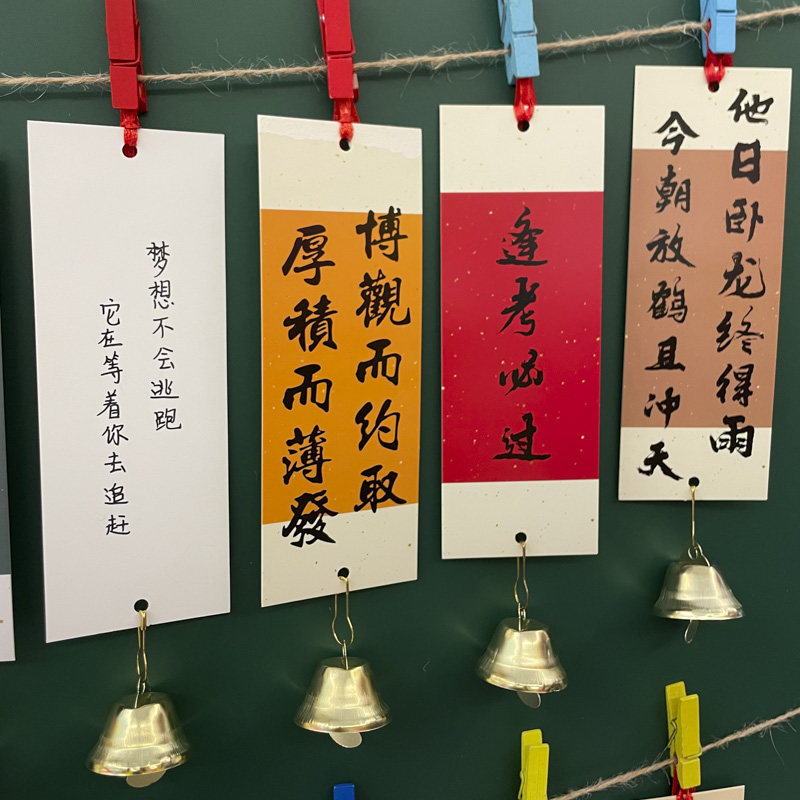 梦想不会逃跑
它在等着你去追赶
博觀而约取
厚積而薄發
逢考必过
他日卧龙终得雨
今朝放鹤且冲天